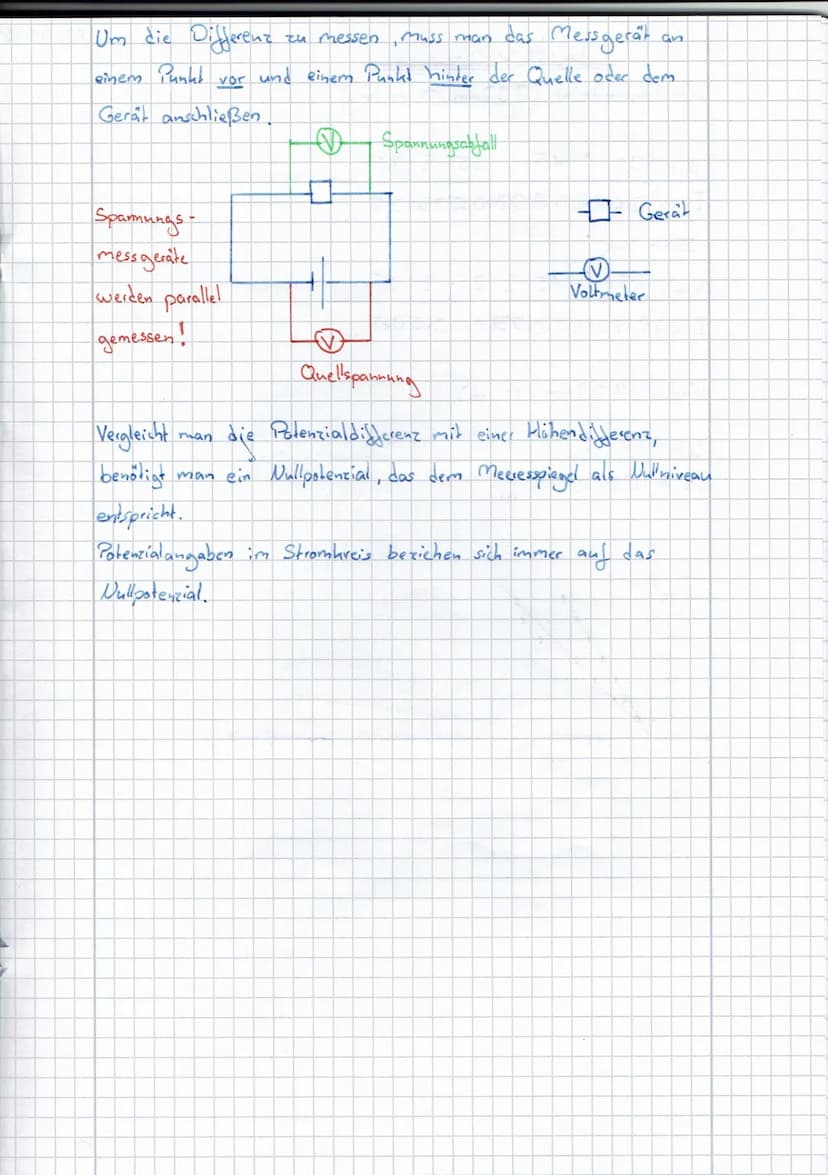 Um die Differenz zu messen, muss man das Messgerät an
einem Punkt vor und einem Punkt hinter der Quelle oder dem
Gerät anschließen.
V
Spannungsabfall
Spannungs-
messgeräte
werden parallel
gemessen!
Gerät
V
Voltmeter
V
Quellspannung
Vergleicht man die Potenzialdifferenz mit einer Höhendifferenz,
benötigt man ein Nullpotenzial, das dem Meeresspiegel als Nullniveau
entspricht.
Potenzialangaben im Stromkreis beziehen sich immer auf das
Nullpotenzial.